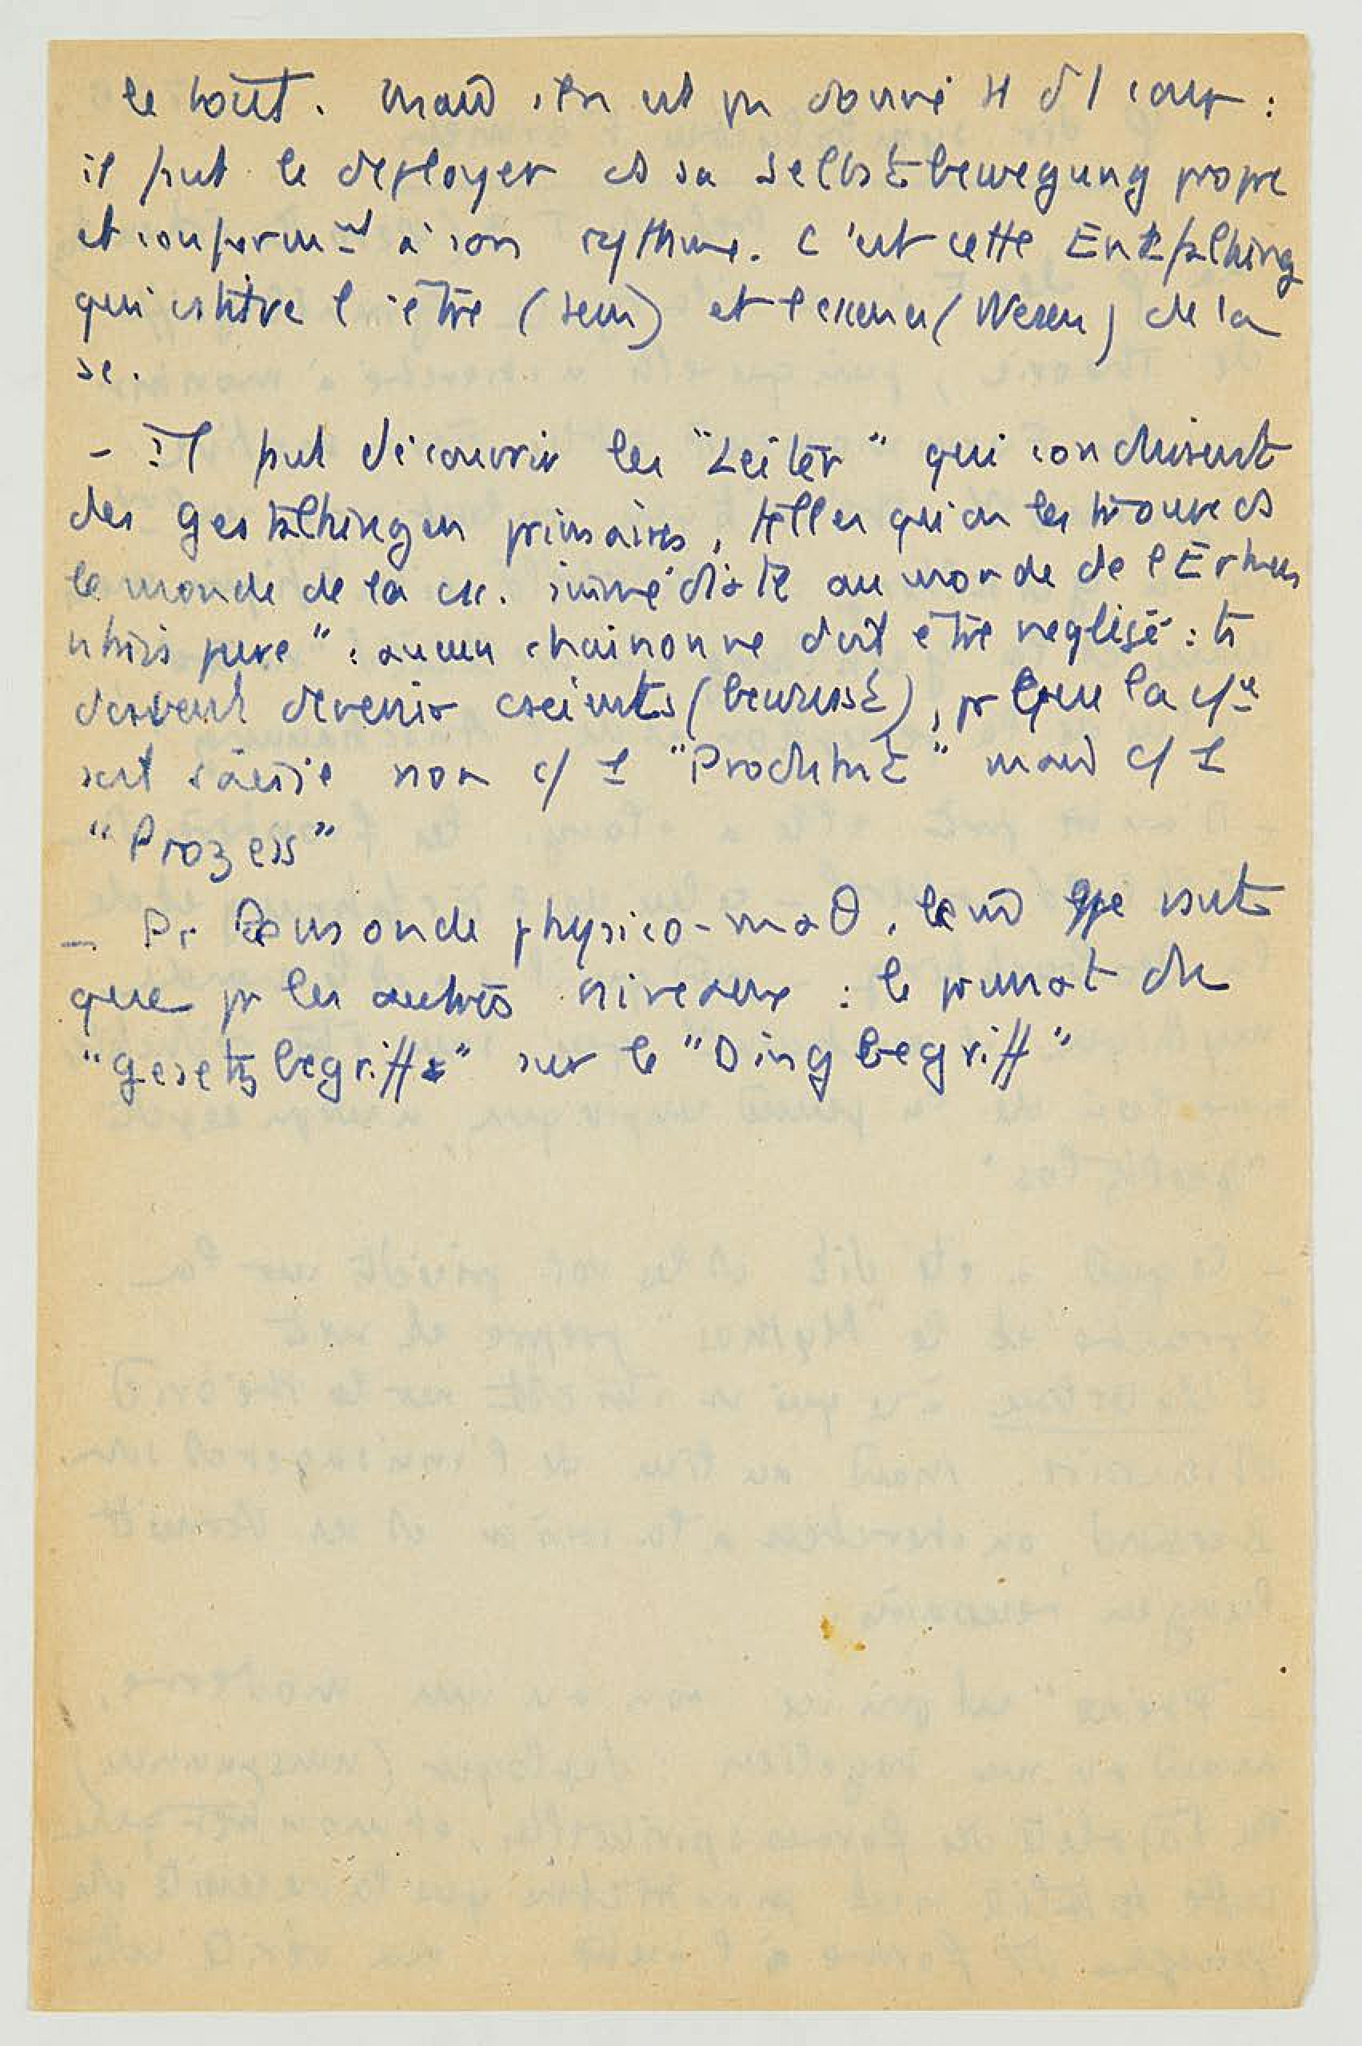 le tout. mais il n'est pas donné tt d'1 coup :
il faut le deployer ds sa Selbstbewegung propre
et conformt à son rythme. C'est cette Entfaltung
qui constitue l'être (sein) et l'essence (Wesen) de la
sc.
- Il faut découvrir les "Leiter" qui conduisent
des gestaltungen primaires, telles qu'on les trouve ds
le monde de la csc. immédiate au monde de l'"Erkenn
tnis pure" : aucun chainon ne doit être negligé : ts
doivent devenir cscients (bewusst), pr que la
soit saisie non c/ 1 "Produkt" mais c/ 1
"Prozess"
- Pr le monde physico-maθ. le
que pr les autres niveaux : le primat du
"gesetzbegriff" sur le "Dingbegriff"